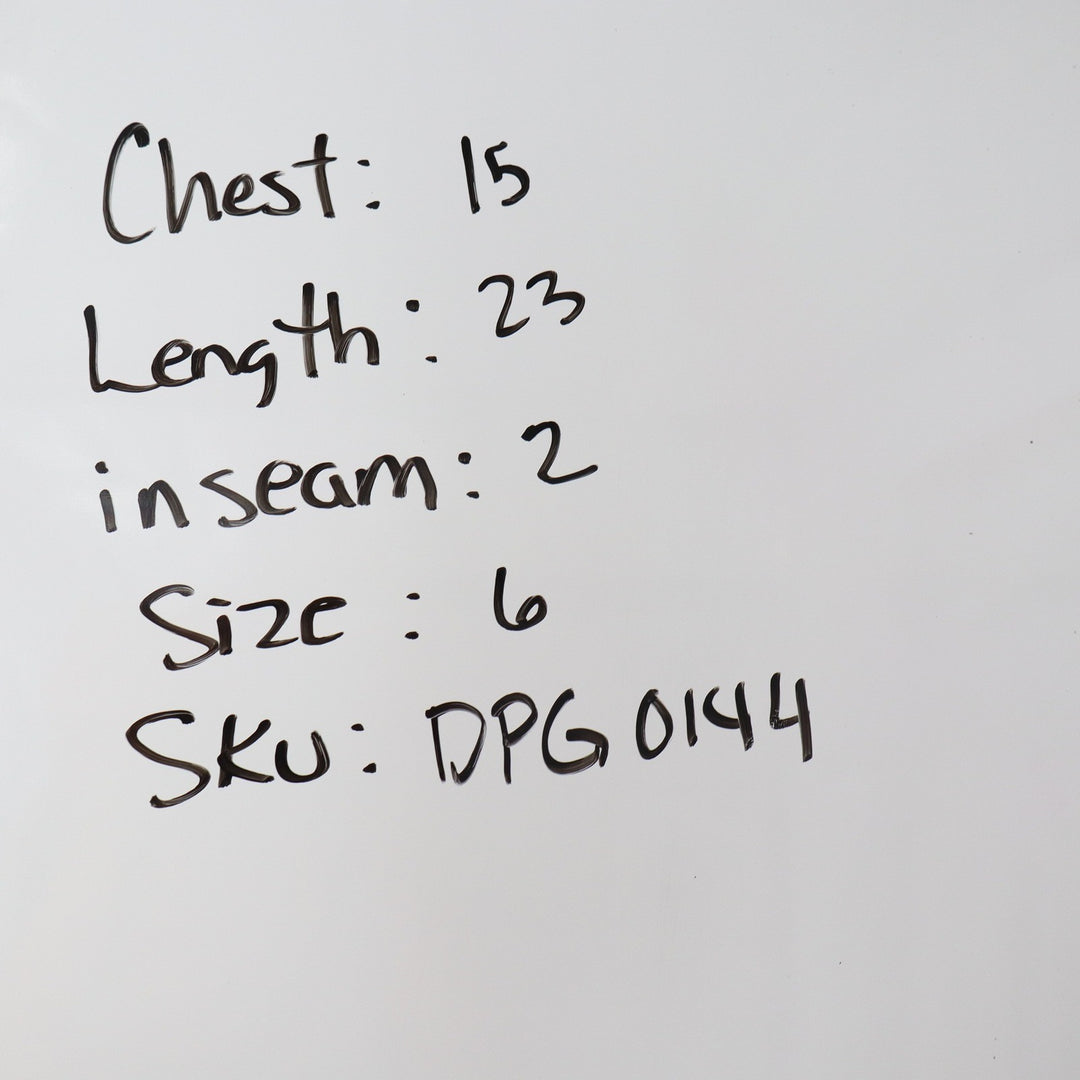 Chest: 15
Length: 23
inseam: 2
Size: 6
SKU: DPG0144